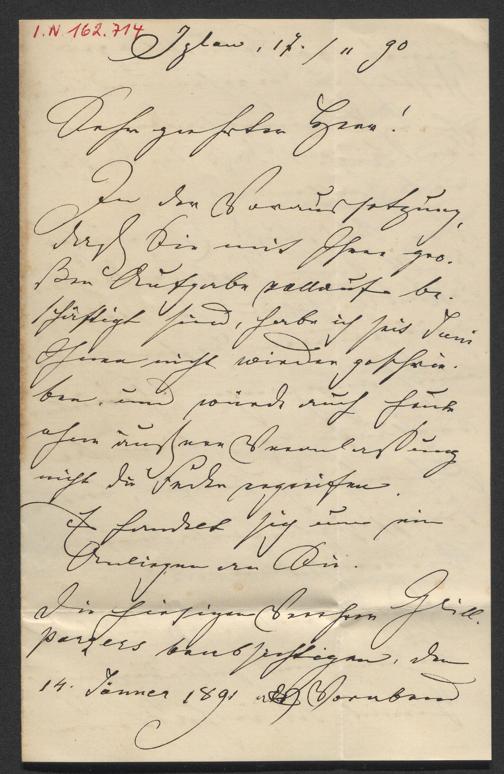 I.N 162.714
Iglau, 17. / 11 90
Sehr geehrter Herr!
In der Voraussetzung,
daß Sie mit Ihrer gro-
ßen Aufgabe vollauf be-
schäftigt sind, habe ich seit Juni
Ihnen nicht wieder geschrie-
ben, und würde auch heute
ohne äußere Veranlassung
nicht die Feder ergreifen.
Es handelt sich um ein
Anliegen an Sie.
Die hiesigen Verehrer Grill-
parzers beabsichtigen, den
14. Jänner 1891 als Vorabend